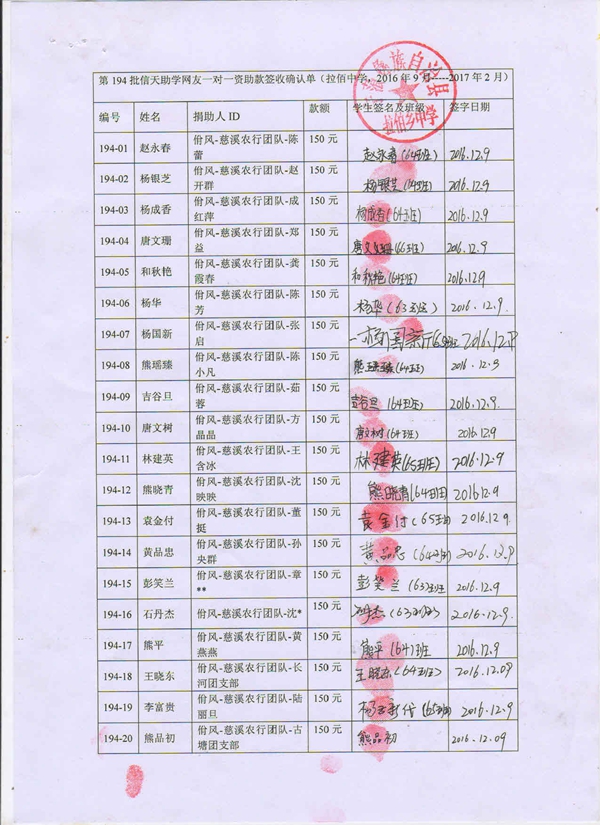 第194批信天助学网友一对一资助款签收确认单（拉佰中学，2016年9月-----2017年2月）
拉伯乡中学
编号 姓名 捐助人ID 款额 学生签名及班级 签字日期
194-01 赵永春 佾风-慈溪农行团队-陈蕾 150元 赵永春(64班) 2016.12.9
194-02 杨银芝 佾风-慈溪农行团队-赵开群 150元 杨银芝 2016.12.9
194-03 杨成香 佾风-慈溪农行团队-成红萍 150元 杨成香(64班) 2016.12.9
194-04 唐文珊 佾风-慈溪农行团队-郑益 150元 2016.12.9
194-05 和秋艳 佾风-慈溪农行团队-龚霞春 150元 和秋艳(64班) 2016.12.9
194-06 杨华 佾风-慈溪农行团队-陈芳 150元 杨华(63班) 2016.12.9
194-07 杨国新 佾风-慈溪农行团队-张启 150元 杨国新
194-08 熊瑶臻 佾风-慈溪农行团队-陈小凡 150元 熊瑶臻(64班) 2016.12.9
194-09 吉谷旦 佾风-慈溪农行团队-茹蓉 150元 吉谷旦(64班) 2016.12.9.
194-10 唐文树 佾风-慈溪农行团队-方晶晶 150元 唐文树(64班) 2016.12.9
194-11 林建英 佾风-慈溪农行团队-王含冰 150元 林建英(65班) 2016.12.9
194-12 熊晓青 佾风-慈溪农行团队-沈映映 150元 熊晓青(64班) 2016.12.9
194-13 袁金付 佾风-慈溪农行团队-董挺 150元 袁金付(65班) 2016.12.9.
194-14 黄品忠 佾风-慈溪农行团队-孙央群 150元 黄品忠(64班) 2016.12.9
194-15 彭笑兰 佾风-慈溪农行团队-章** 150元 彭笑兰(63班) 2016.12.9
194-16 石丹杰 佾风-慈溪农行团队-沈* 150元 (63班) 2016.12.9.
194-17 熊平 佾风-慈溪农行团队-黄燕燕 150元 熊平(64)班 2016.12.9
194-18 王晓东 佾风-慈溪农行团队-长河团支部 150元 王晓东(64班) 2016.12.09
194-19 李富贵 佾风-慈溪农行团队-陆丽旦 150元 (65班) 2016.12.9
194-20 熊品初 佾风-慈溪农行团队-古塘团支部 150元 熊品初 2016.12.09